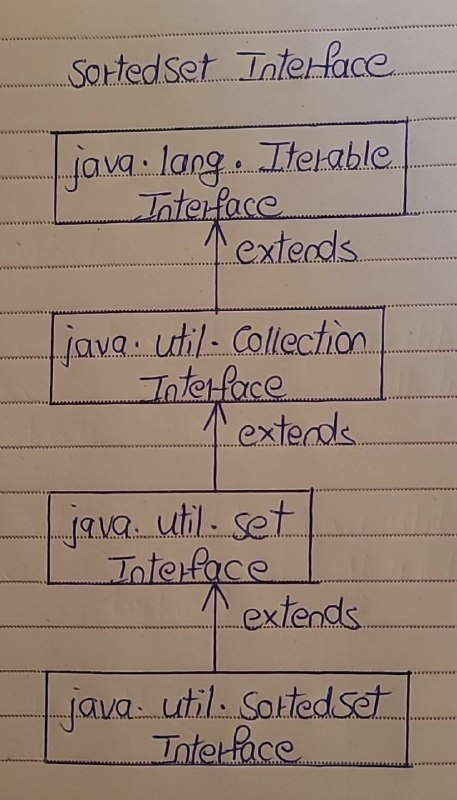 SortedSet Interface
java.lang.Iterable
Interface
extends
java.util.Collection
Interface
extends
java.util.set
Interface
extends
java.util.sortedset
Interface